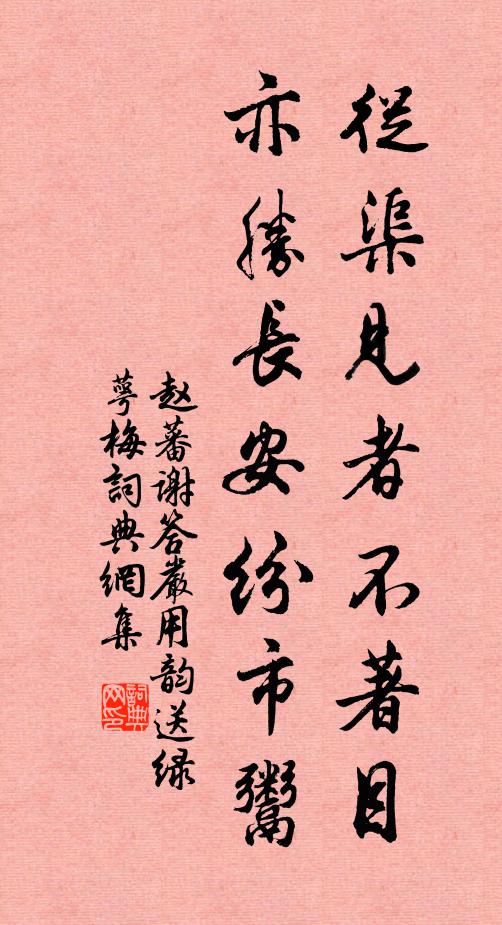 從渠見者不著目
亦勝長安紛市鬻
赵蕃谢答嚴用韵送绿
萼梅詞典網集
詞典网印